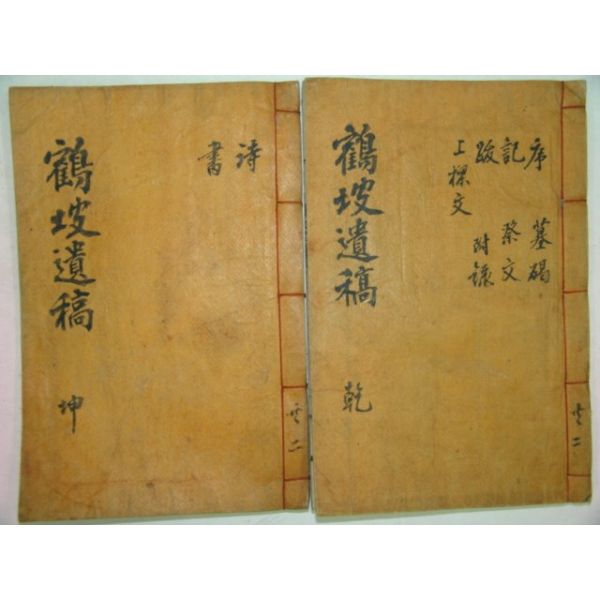 共二
序 墓碣
記 祭文
跋 附錄
上樑文
鶴坡遺稿 乾
共二
詩
書
鶴坡遺稿 坤